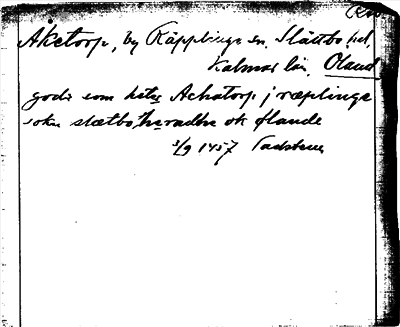 Åketorp, by Räpplinge sn. Slättbo hd,
Kalmar län. Öland
godz som heter Achatorp j ræplinge
sokn slætbo heradhe ok ølande
3/9 1457 Vadstena